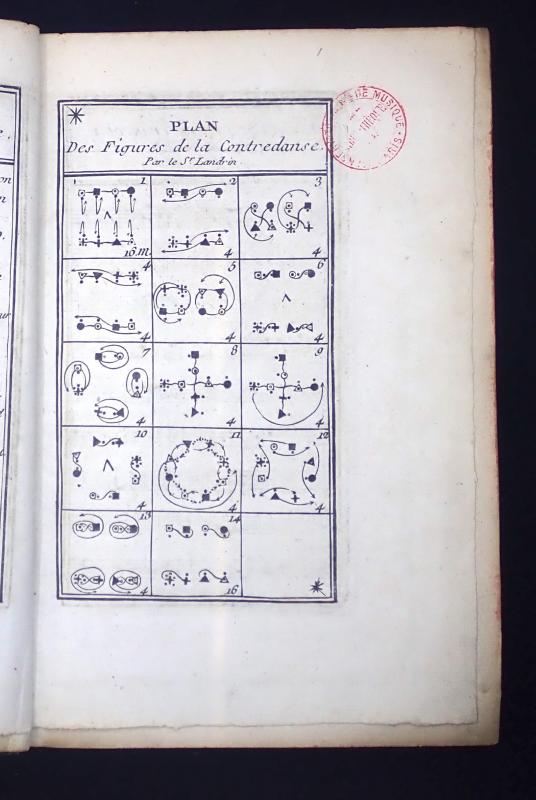 PLAN
Des Figures de la Contredanse.
Par le Sr. Landrin.
1 2 3
16.m. 4 4
4 5 6
4 4 4
7 8 9
4 4 4
10 11 12
4 4 4
13 14
4 16
DE MUSIQUE